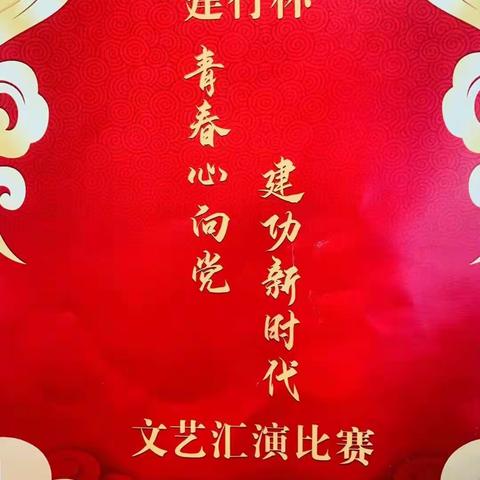 建行杯
青春心向党
建功新时代
文艺汇演比赛